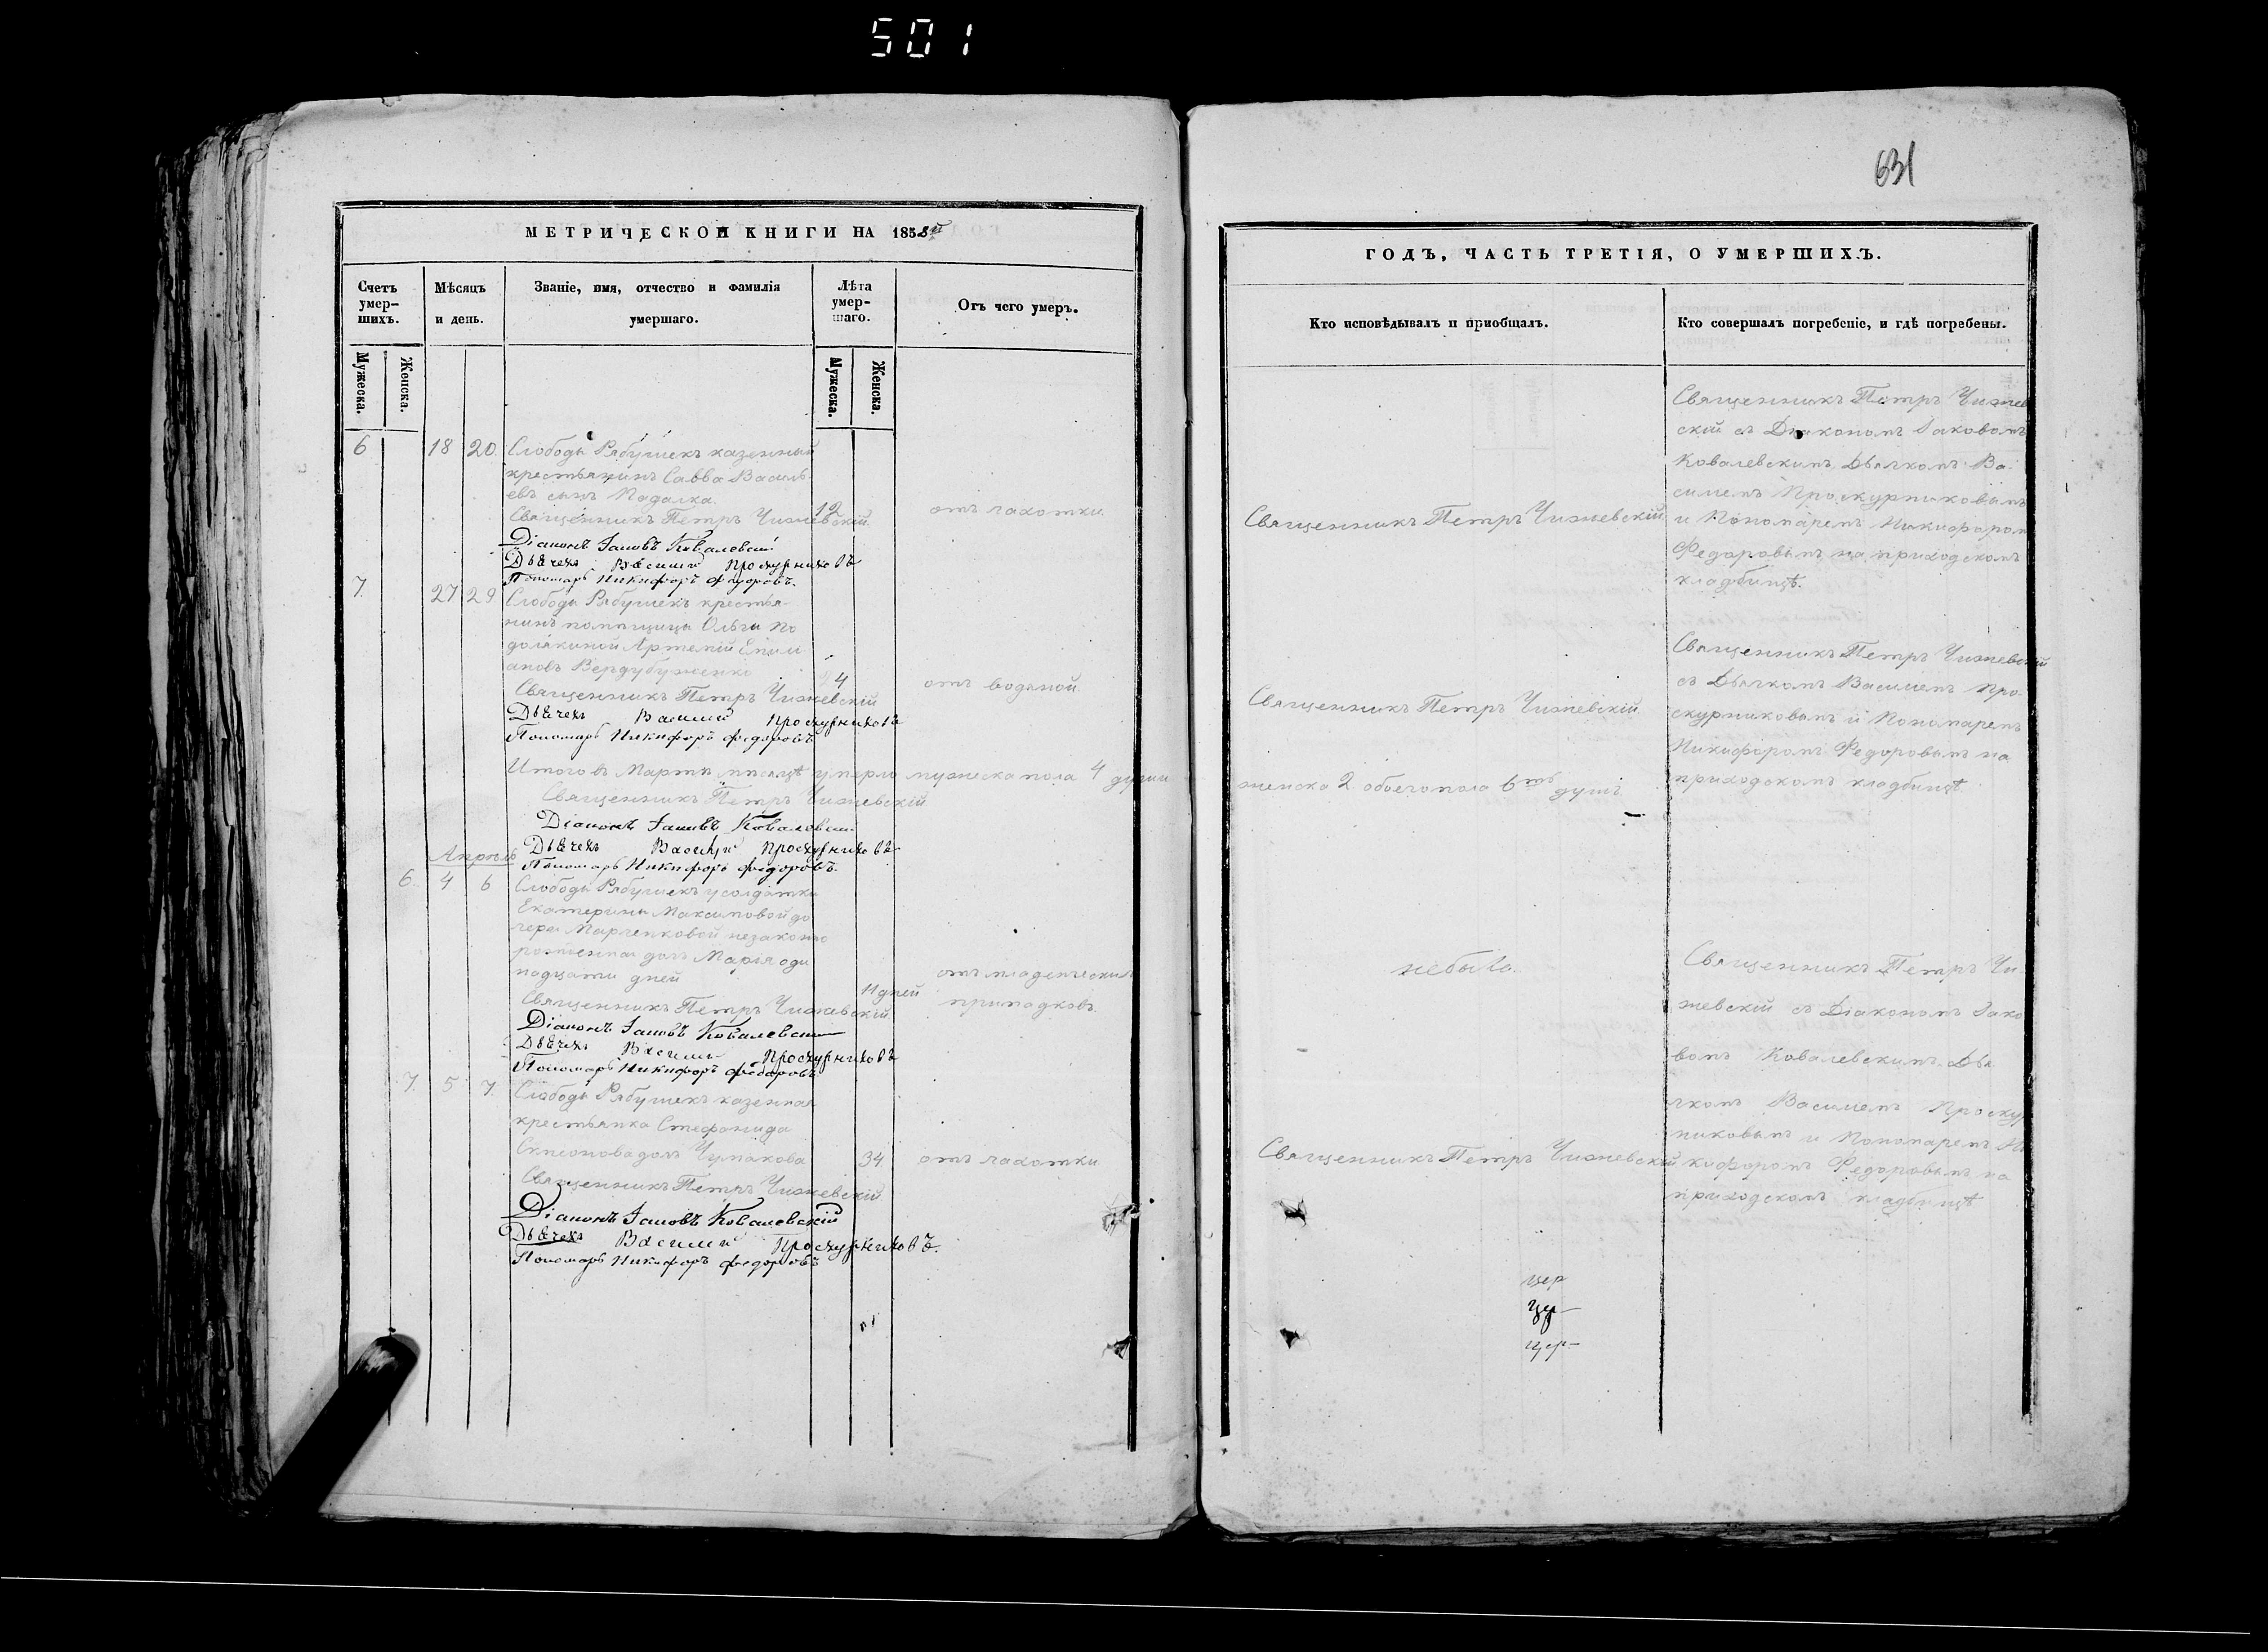 501
631
МЕТРИЧЕСКОЙ КНИГИ НА 1858й
Счетъ умер-
шихъ.
Мѣсяцъ
и день.
Званіе, имя, отчество и фамилія
умершаго.
Лѣта
умер-
шаго.
Отъ чего умеръ.
Мужеска.
Женска.
Мужеска.
Женска.
6 18 20 Слободы Рябушекъ казенный
крестьянинъ Савва Василь
евъ сынъ Падалка 12 отъ чахотки
Священникъ Петръ Чижевскій
Діаконъ Іаковъ Ковалевскій
Дьячекъ Василий Проскурниковъ
Пономарь Никифоръ Федоровъ
7. 27 29 Слободы Рябушекъ крестья-
нинъ помѣщицы Ольги По
Священникъ Петръ Чижевскій 4 отъ водяной
Дьячекъ Василий Проскурниковъ
Пономарь Никифоръ Федоровъ
Итого въ Мартѣ мѣсяцѣ умерло мужеска пола 4 души
Священникъ Петръ Чижевскій
Діаконъ Іаковъ Ковалевскій
Дьячекъ Василий Проскурниковъ
Апрѣль Пономарь Никифоръ Федоровъ
6. 4 6 Слободы Рябушекъ у солдатки
Екатерины Максимовой до
чери Марченковой незаконно
рожденная дочь Марія оди
надцати дней 11 дней отъ младенческихъ
припадковъ
Священникъ Петръ Чижевскій
Діаконъ Іаковъ Ковалевскій
Дьячекъ Василий Проскурниковъ
Пономарь Никифоръ Федоровъ
7. 5 7. Слободы Рябушекъ казенная
крестьянка Стефанида
дочь Чумакова 34 отъ чахотки
Священникъ Петръ Чижевскій
Діаконъ Іаковъ Ковалевскій
Дьячекъ Василий Проскурниковъ.
Пономарь Никифоръ Федоровъ
ГОДЪ, ЧАСТЬ ТРЕТІЯ, О УМЕРШИХЪ.
Кто исповѣдывалъ и пріобщалъ.
Кто совершалъ погребеніе, и гдѣ погребены.
Священникъ Петръ Чижевскій
Священникъ Петръ Чижев
скій съ Діакономъ Іаковомъ
Ковалевскимъ Дьячкомъ Ва-
силіемъ Проскурниковымъ
и Пономаремъ Никифоромъ
Федоровымъ на приходскомъ
кладбищѣ.
Священникъ Петръ Чижевскій
Священникъ Петръ Чижевскій
съ Дьячкомъ Василіемъ Про
скурниковымъ и Пономаремъ
Никифоромъ Федоровымъ на
приходскомъ кладбищѣ
женска 2 обоего пола 6ть душъ
небыло.
Священникъ Петръ Чи
жевскій съ Діакономъ Іако
вомъ Ковалевскимъ Дья
чкомъ Василіемъ Проскур
никовымъ и Пономаремъ Ни
кифоромъ Федоровымъ на
приходскомъ кладбищѣ
Священникъ Петръ Чижевскій